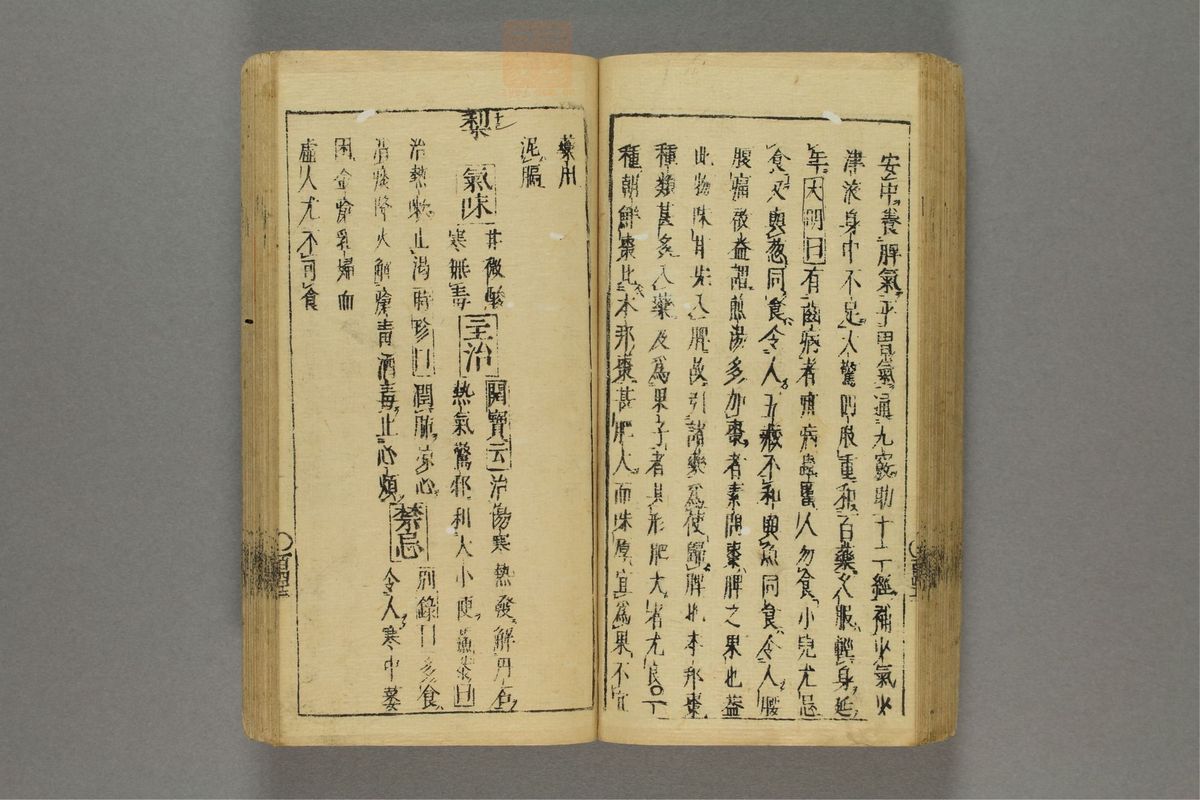 安中養脾氣平胃氣通九竅助十二經補少氣少
津液身中不足大驚四肢重和百藥久服輕身延
年大明曰有齒病者疳病蟲䘌人勿食小兒尤忌
食又與葱同食令人五臟不和與魚同食令人腰
腹痛時珍蓋謂煎湯多加棗者素問棗脾之果也蓋
此物味甘先入脾故引諸藥爲使歸脾也本邦棗
種類甚多入藥及爲果子者其形肥大者尤良○一
種朝鮮棗比本邦棗甚肥大而味厚宜爲果不宜
藥用
泥膈
梨
氣味 甘微酸
寒無毒
主治 開寶云治傷寒熱發解丹石
熱氣驚邪利大小便蘇恭曰
治熱嗽止渴時珍曰潤肺凉心
消痰降火解瘡毒酒毒止心煩
禁忌 別錄曰多食
令人寒中萎
困金瘡乳婦血
虛人尤不可食
百四